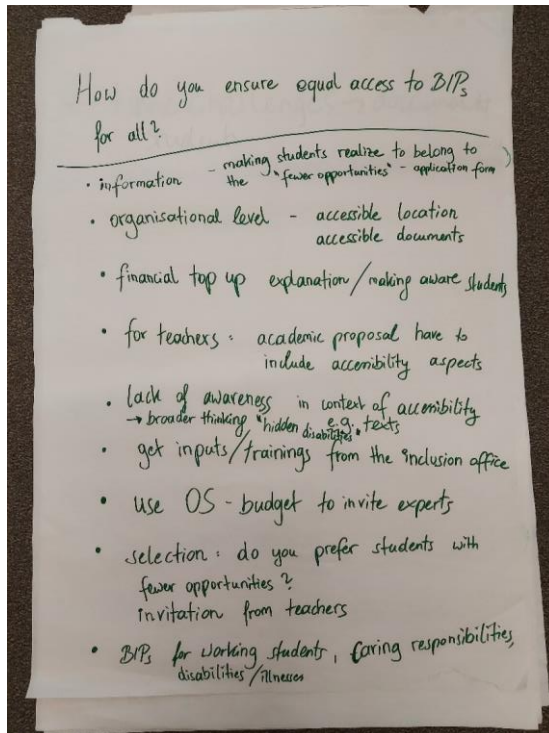 How do you ensure equal access to BIPs
for all?
• information - making students realize to belong to
the "fewer opportunities" - application form )
• organisational level - accessible location
accessible documents
• financial top up explanation/making aware students
• for teachers: academic proposal have to
include accessibility aspects
• lack of awareness in context of accessibility
→ broader thinking "hidden disabilities" e.g. texts
• get inputs/trainings from the inclusion office
• use OS - budget to invite experts
• selection: do you prefer students with
fewer opportunities?
invitation from teachers
• BIPs for working students, caring responsibilities,
disabilities/illnesses